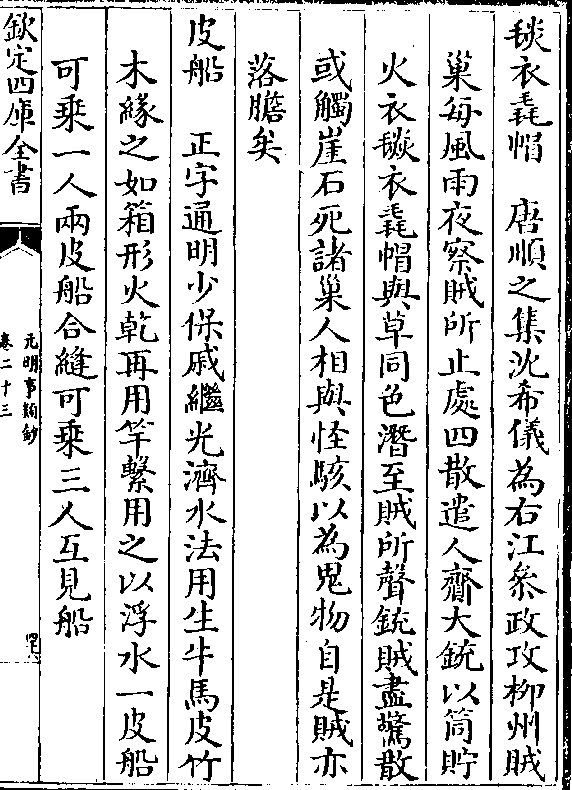 毯衣毳帽　唐順之集沈希儀為右江叅政攻柳州賊
巢每風雨夜察賊所止處四散遣人齎大銃以筒貯
火衣毯衣毳帽與草同色潛至賊所聲銃賊盡驚散
或觸崖石死諸巢人相與怪駭以為鬼物自是賊亦
落膽矣
皮船　正字通明少保戚繼光濟水法用生牛馬皮竹
木緣之如箱形火乾再用竿繫用之以浮水一皮船
可乘一人兩皮船合縫可乘三人互見船
欽定四庫全書
元明事類鈔
卷二十三